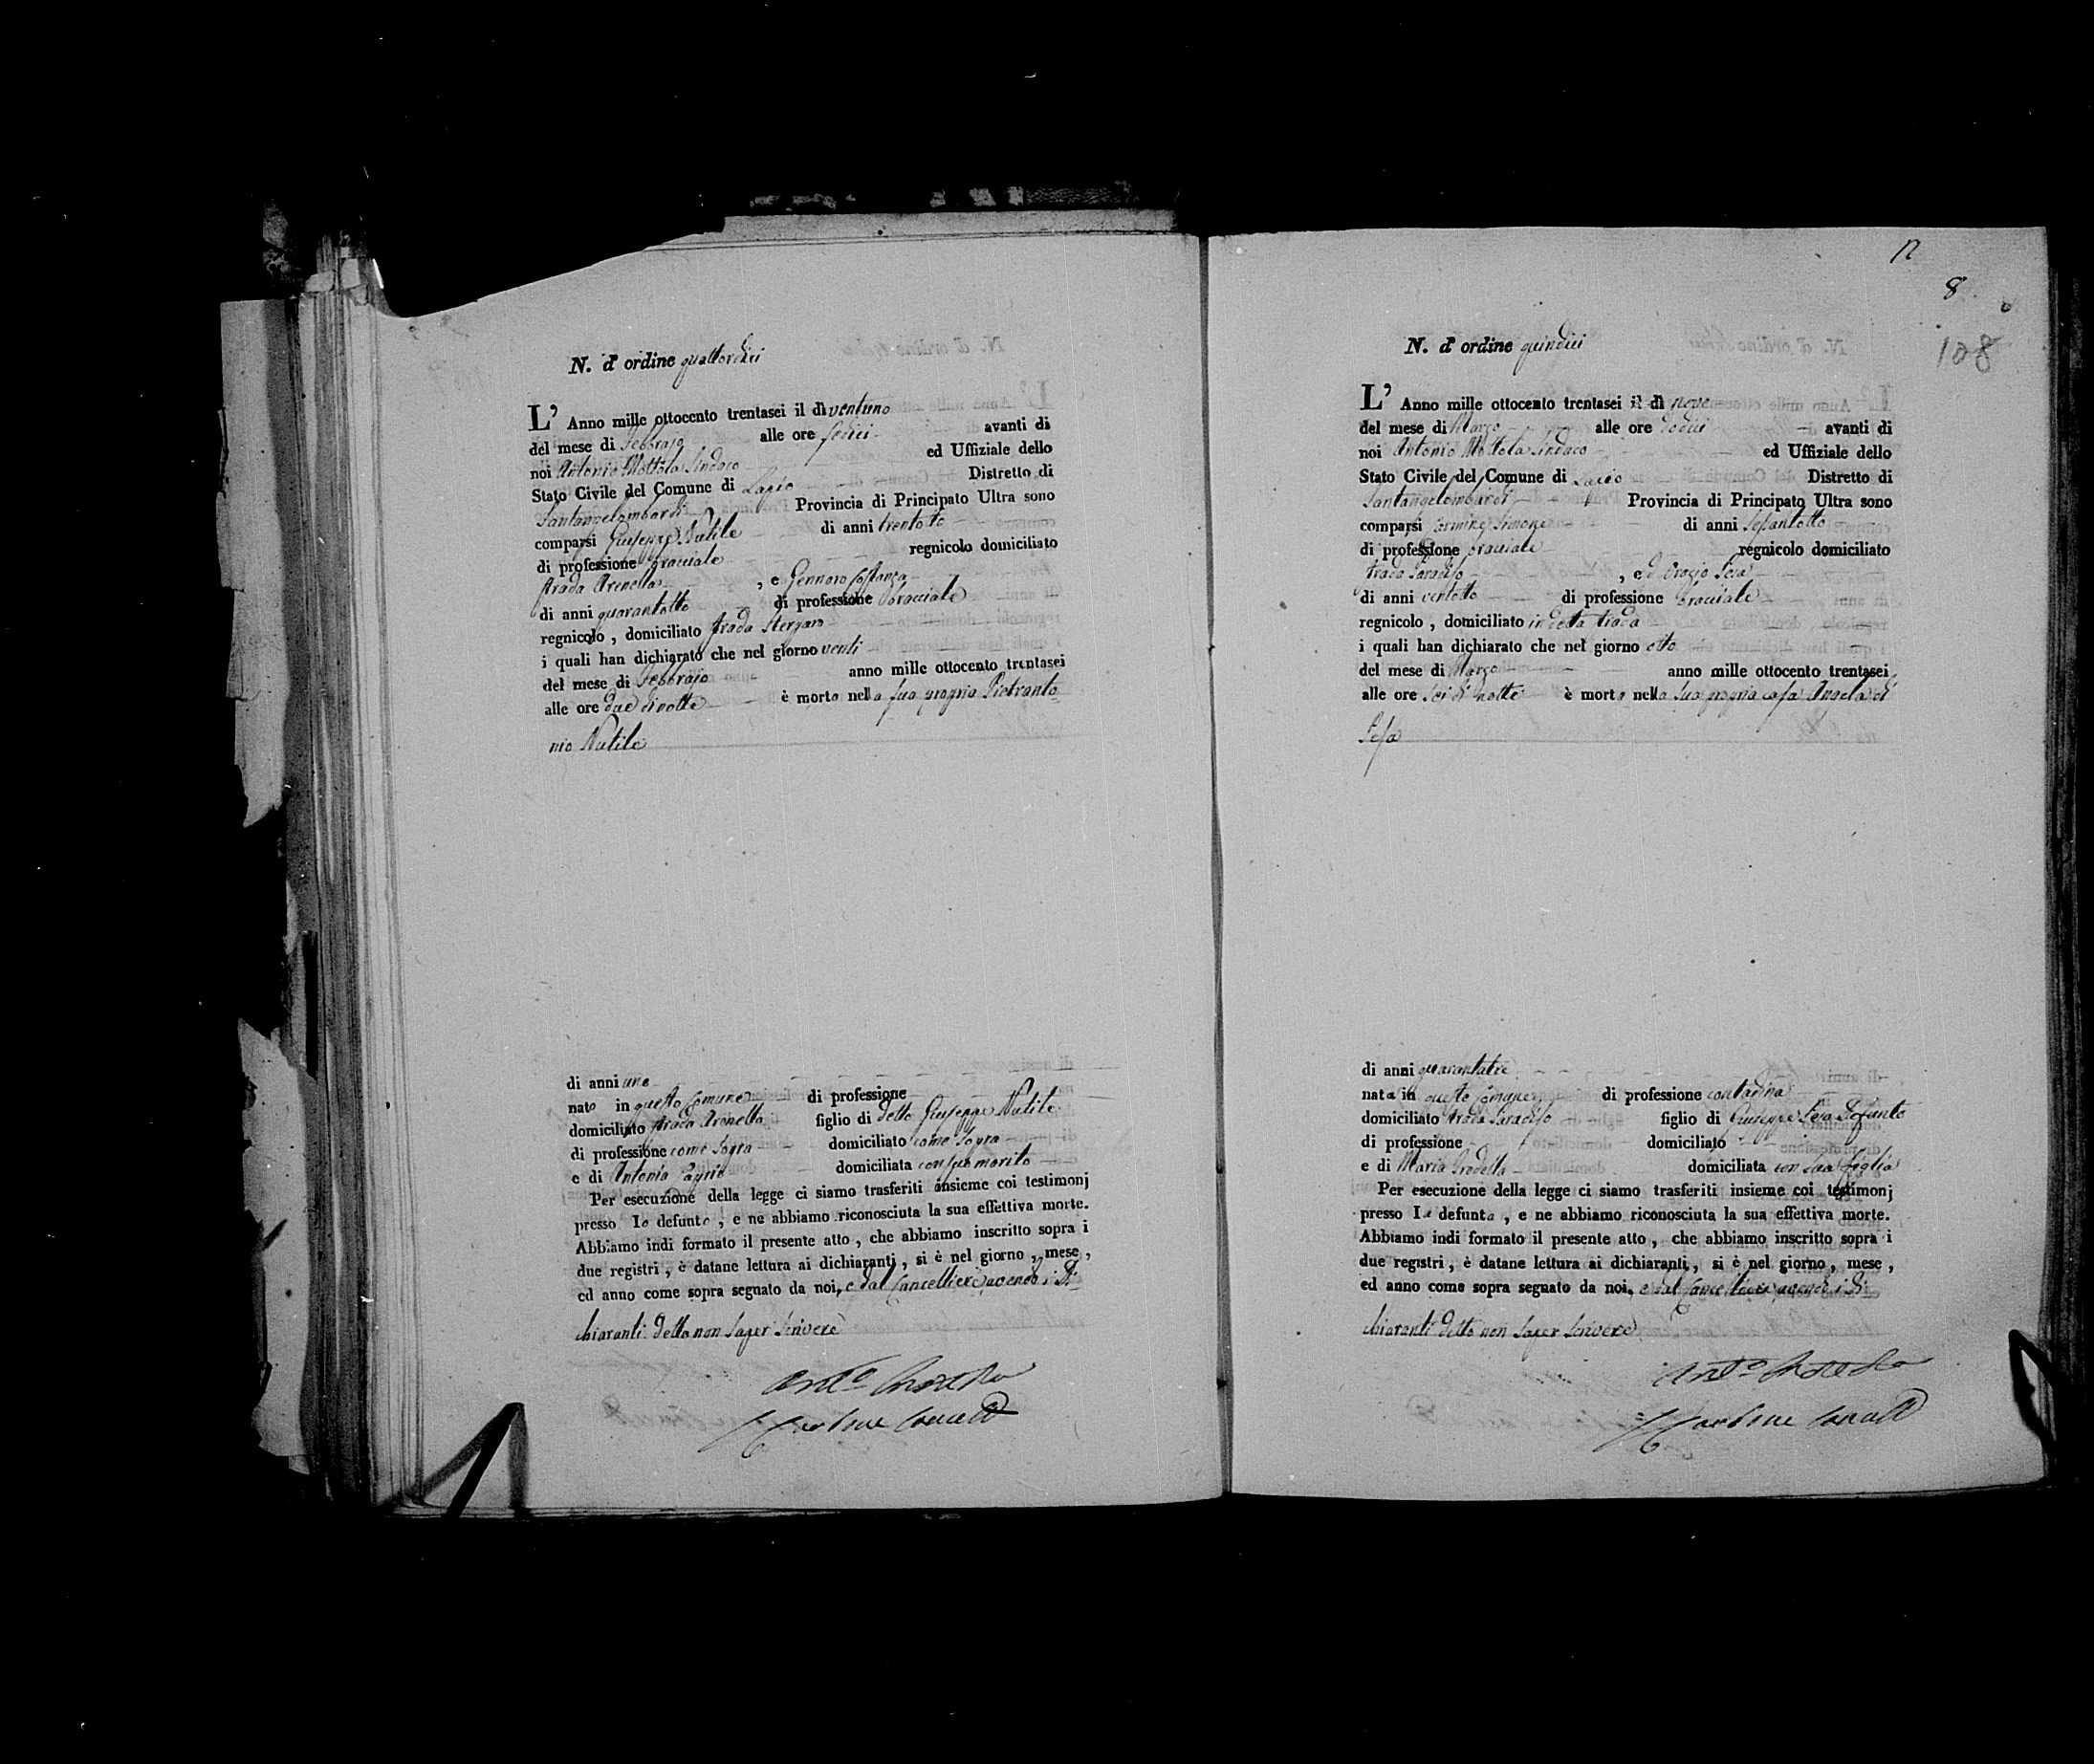 N. d' ordine quattordici
L' Anno mille ottocento trentasei il dì ventuno
del mese di Febbrajo alle ore sedici avanti di
noi Antonio Mottola Sindaco ed Uffiziale dello
Stato Civile del Comune di Lapio Distretto di
Santangelombardi Provincia di Principato Ultra sono
comparsi Giuseppe Nutile di anni trentotto
di professione bracciale regnicolo domiciliato
strada Arenella , e Gennaro Costanza
di anni quarantotto di professione bracciale
regnicolo , domiciliato strada
i quali han dichiarato che nel giorno venti
del mese di Febbraio anno mille ottocento trentasei
alle ore due di notte è morto nella sua propria Pietranto
nio Nutile
di anni uno
nato in questo Comune di professione
domiciliato strada Arenella figlio di detto Giuseppe Nutile
di professione come sopra domiciliato come sopra
e di Antonia domiciliata con suo marito
Per esecuzione della legge ci siamo trasferiti insieme coi testimonj
presso lo defunto , e ne abbiamo riconosciuta la sua effettiva morte.
Abbiamo indi formato il presente atto , che abbiamo inscritto sopra i
due registri , è datane lettura ai dichiaranti , si è nel giorno , mese ,
ed anno come sopra segnato da noi, e dal Cancelliere avendo i Di
chiaranti detto non saper scrivere
Ant.o Mottola
12
8
108
N. d' ordine quindici
L' Anno mille ottocento trentasei il dì nove
del mese di Marzo alle ore dodici avanti di
noi Antonio Mottola Sindaco ed Uffiziale dello
Stato Civile del Comune di Lapio Distretto di
Santangelombardi Provincia di Principato Ultra sono
comparsi Carmine Simone di anni sessantotto
di professione bracciale regnicolo domiciliato
strada Paradiso , ed Orazio Sesa
di anni ventotto di professione bracciale
regnicolo , domiciliato in detta strada
i quali han dichiarato che nel giorno otto
del mese di Marzo anno mille ottocento trentasei
alle ore sei di notte è morta nella sua propria casa Angela di
Sesa
di anni quarantatre
nata in questo Comune di professione contadina
domiciliato strada Paradiso figlio di Giuseppe Sesa defunto
di professione domiciliato
e di Maria domiciliata con sua figlia
Per esecuzione della legge ci siamo trasferiti insieme coi testimonj
presso la defunta , e ne abbiamo riconosciuta la sua effettiva morte.
Abbiamo indi formato il presente atto , che abbiamo inscritto sopra i
due registri , è datane lettura ai dichiaranti , si è nel giorno , mese ,
ed anno come sopra segnato da noi, e dal Cancelliere avendo i Di
chiaranti detto non saper scrivere
Ant.o Mottola